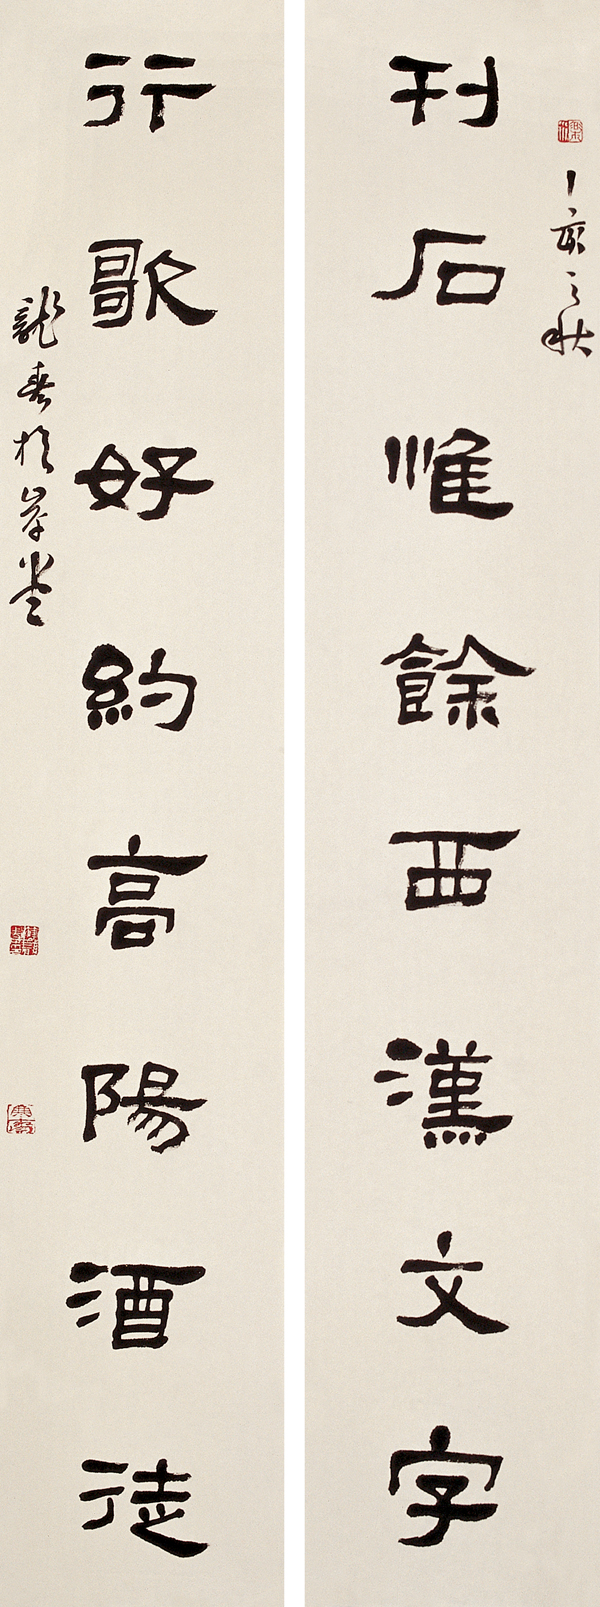 丁亥之秋
刊石惟餘西漢文字
行歌好約高陽酒徒
龍春於岸堂